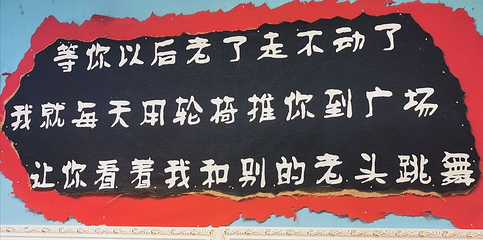 等你以后老了走不动了
我就每天用轮椅推你到广场
让你看着我和别的老头跳舞